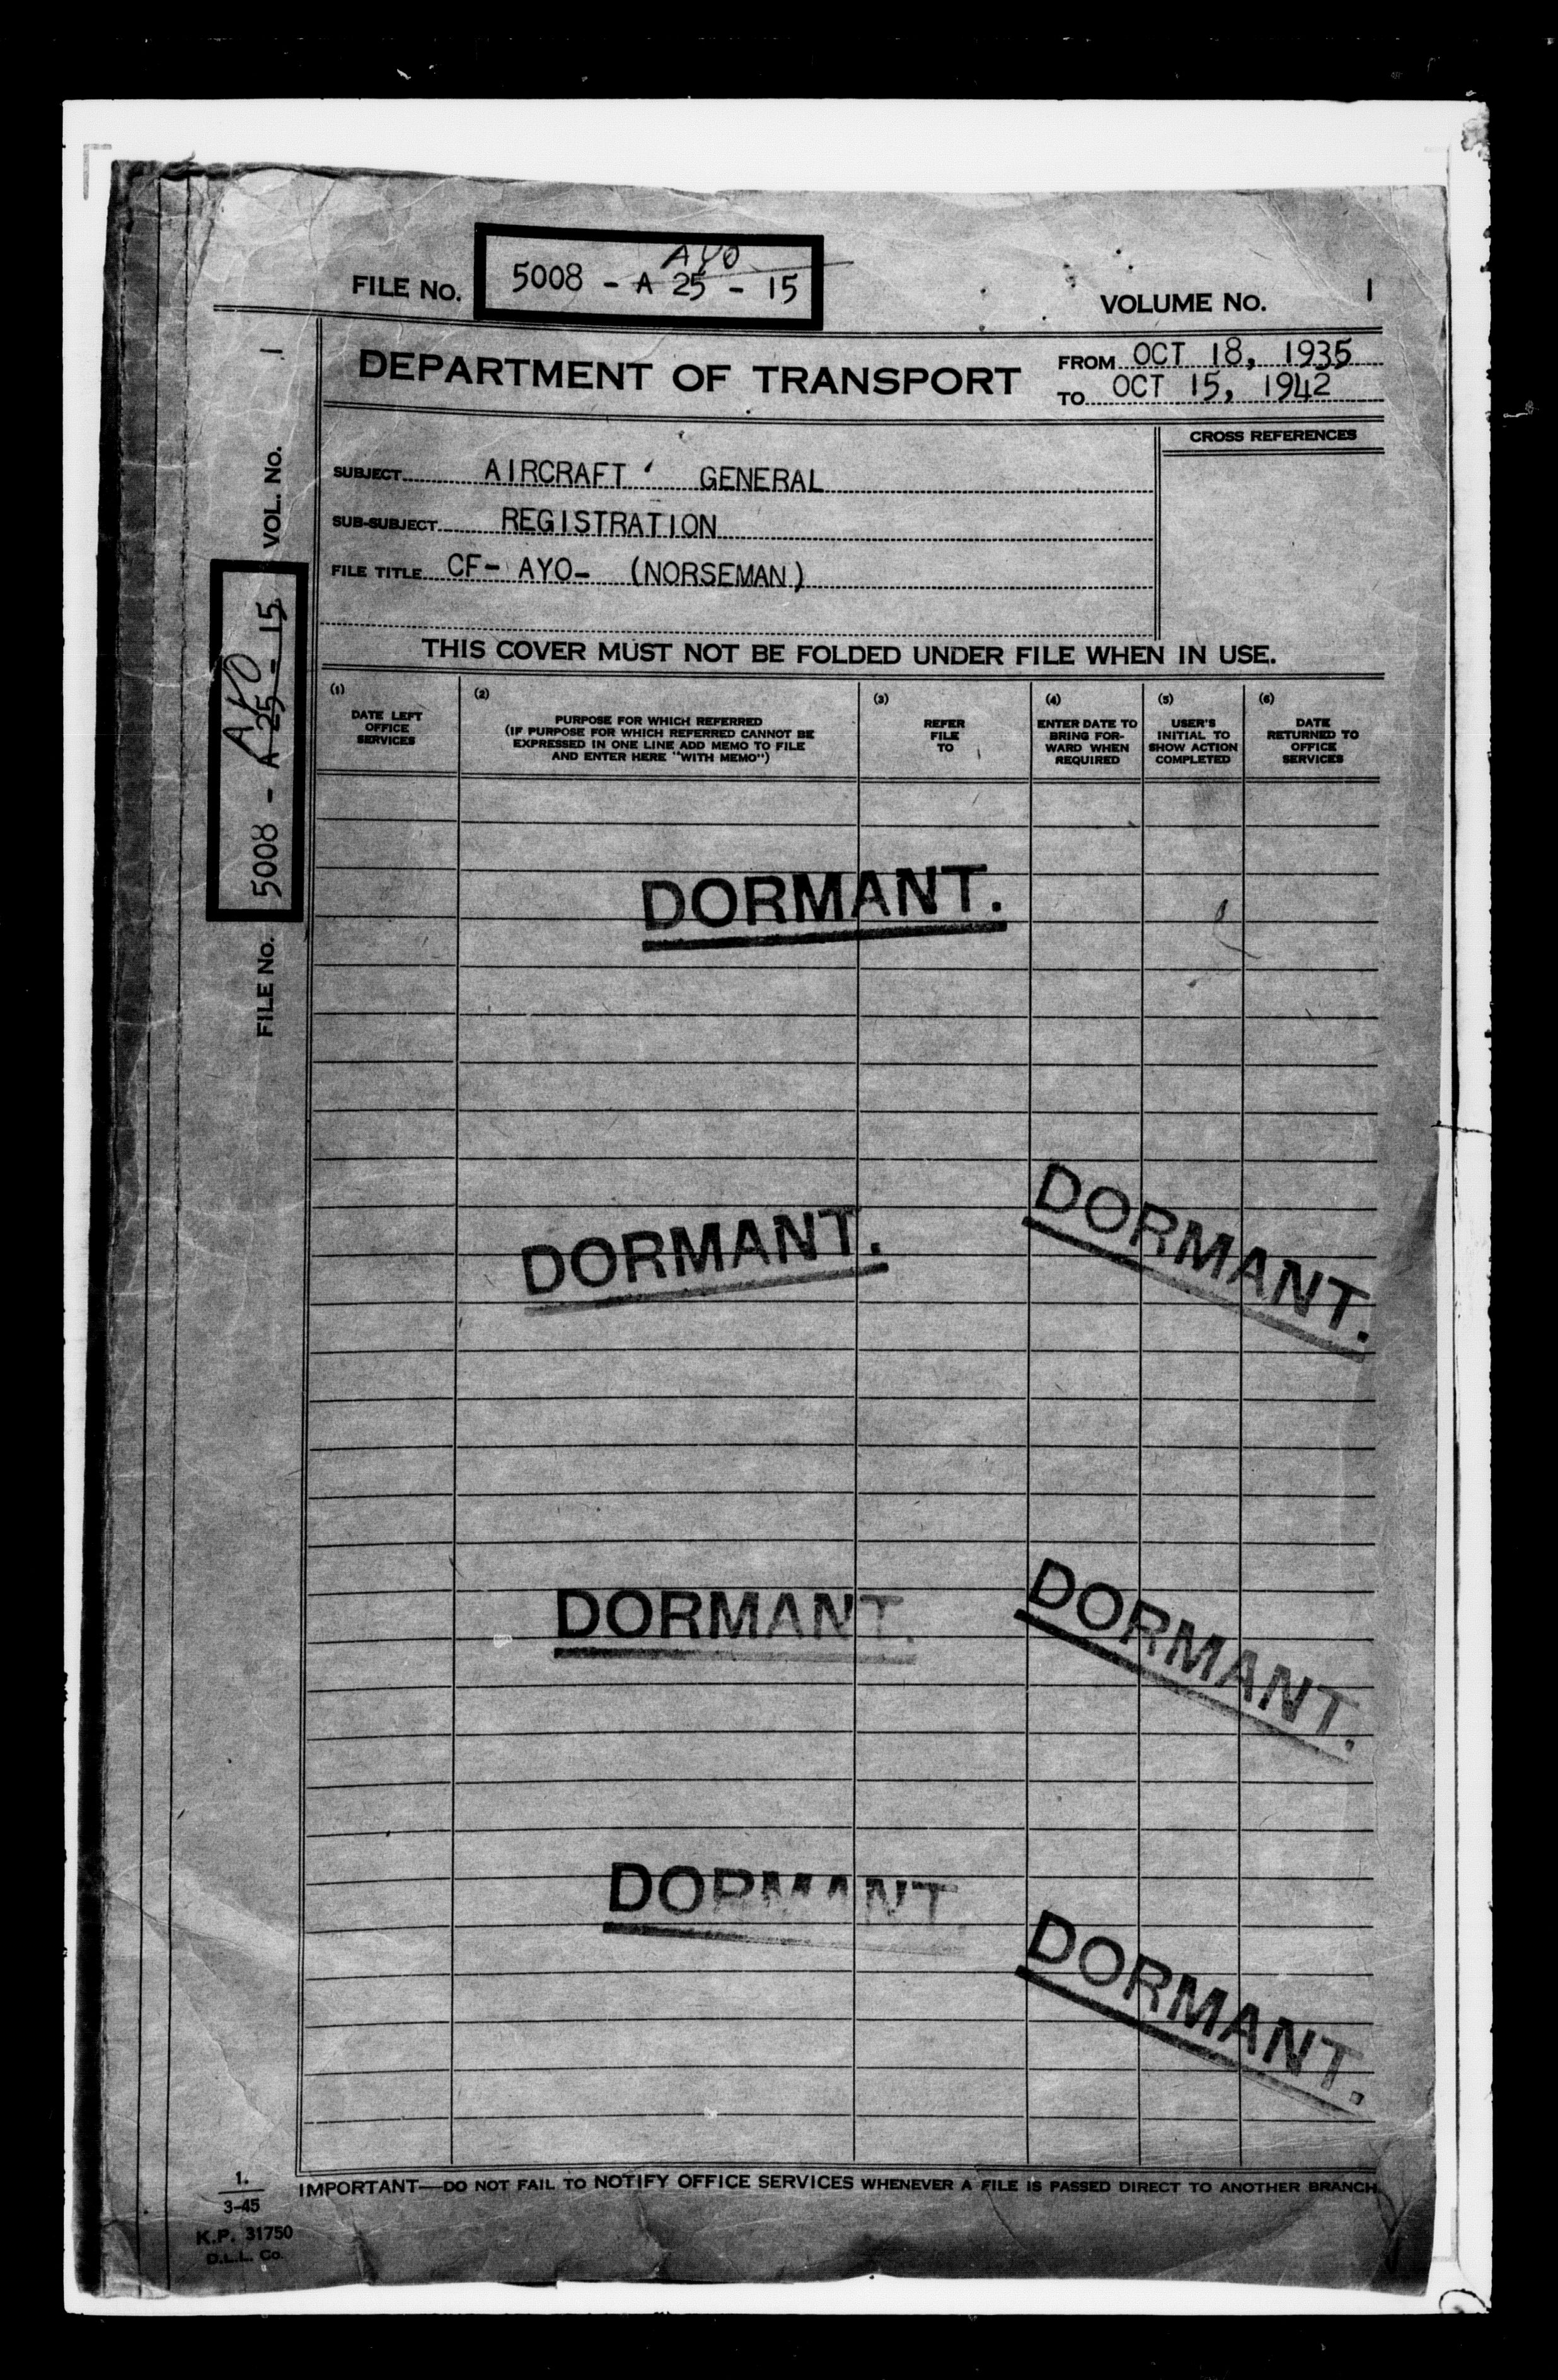 AYO
FILE NO. 5008 - A 25 - 15
VOLUME NO. 1
DEPARTMENT OF TRANSPORT
FROM OCT 18, 1935
TO OCT 15, 1942
CROSS REFERENCES
SUBJECT AIRCRAFT GENERAL
SUB-SUBJECT REGISTRATION
FILE TITLE CF- AYO- (NORSEMAN)
THIS COVER MUST NOT BE FOLDED UNDER FILE WHEN IN USE.
(1)
DATE LEFT
OFFICE
SERVICES
(2)
PURPOSE FOR WHICH REFERRED
(IF PURPOSE FOR WHICH REFERRED CANNOT BE
EXPRESSED IN ONE LINE ADD MEMO TO FILE
AND ENTER HERE "WITH MEMO")
(3)
REFER
FILE
TO
(4)
ENTER DATE TO
BRING FOR-
WARD WHEN
REQUIRED
(5)
USER'S
INITIAL TO
SHOW ACTION
COMPLETED
(6)
DATE
RETURNED TO
OFFICE
SERVICES
AYO
FILE NO. 5008 - A 25 - 15 VOL. NO. 1
DORMANT.
DORMANT.
DORMANT.
DORMANT.
DORMANT.
DORMANT.
DORMANT.
IMPORTANT—DO NOT FAIL TO NOTIFY OFFICE SERVICES WHENEVER A FILE IS PASSED DIRECT TO ANOTHER BRANCH.
1.
3-45
K.P. 31750
D.L.L. Co.